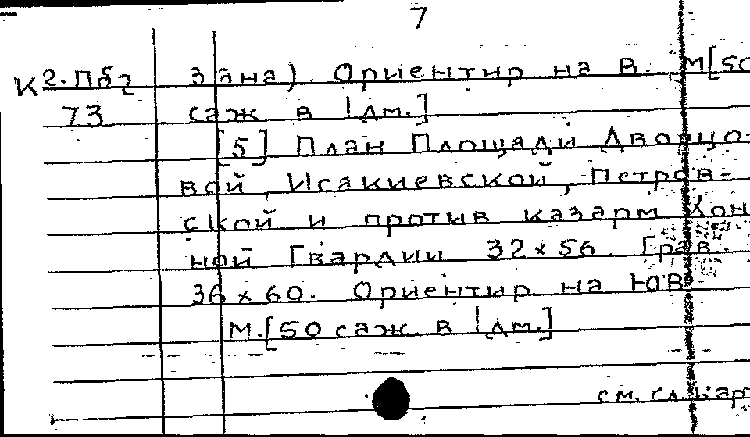 7
К 2.Пб2 зана) Ориентир на В. М[50
73 саж в 1 дм.]
[5] План Площади Дворцо-
вой, Исакиевской, Петров-
ской и против казарм Кон
ной Гвардии 32×56. Грав.
36×60. Ориентир на ЮВ
М.[50 саж. в 1 дм.]
см. сл. кар